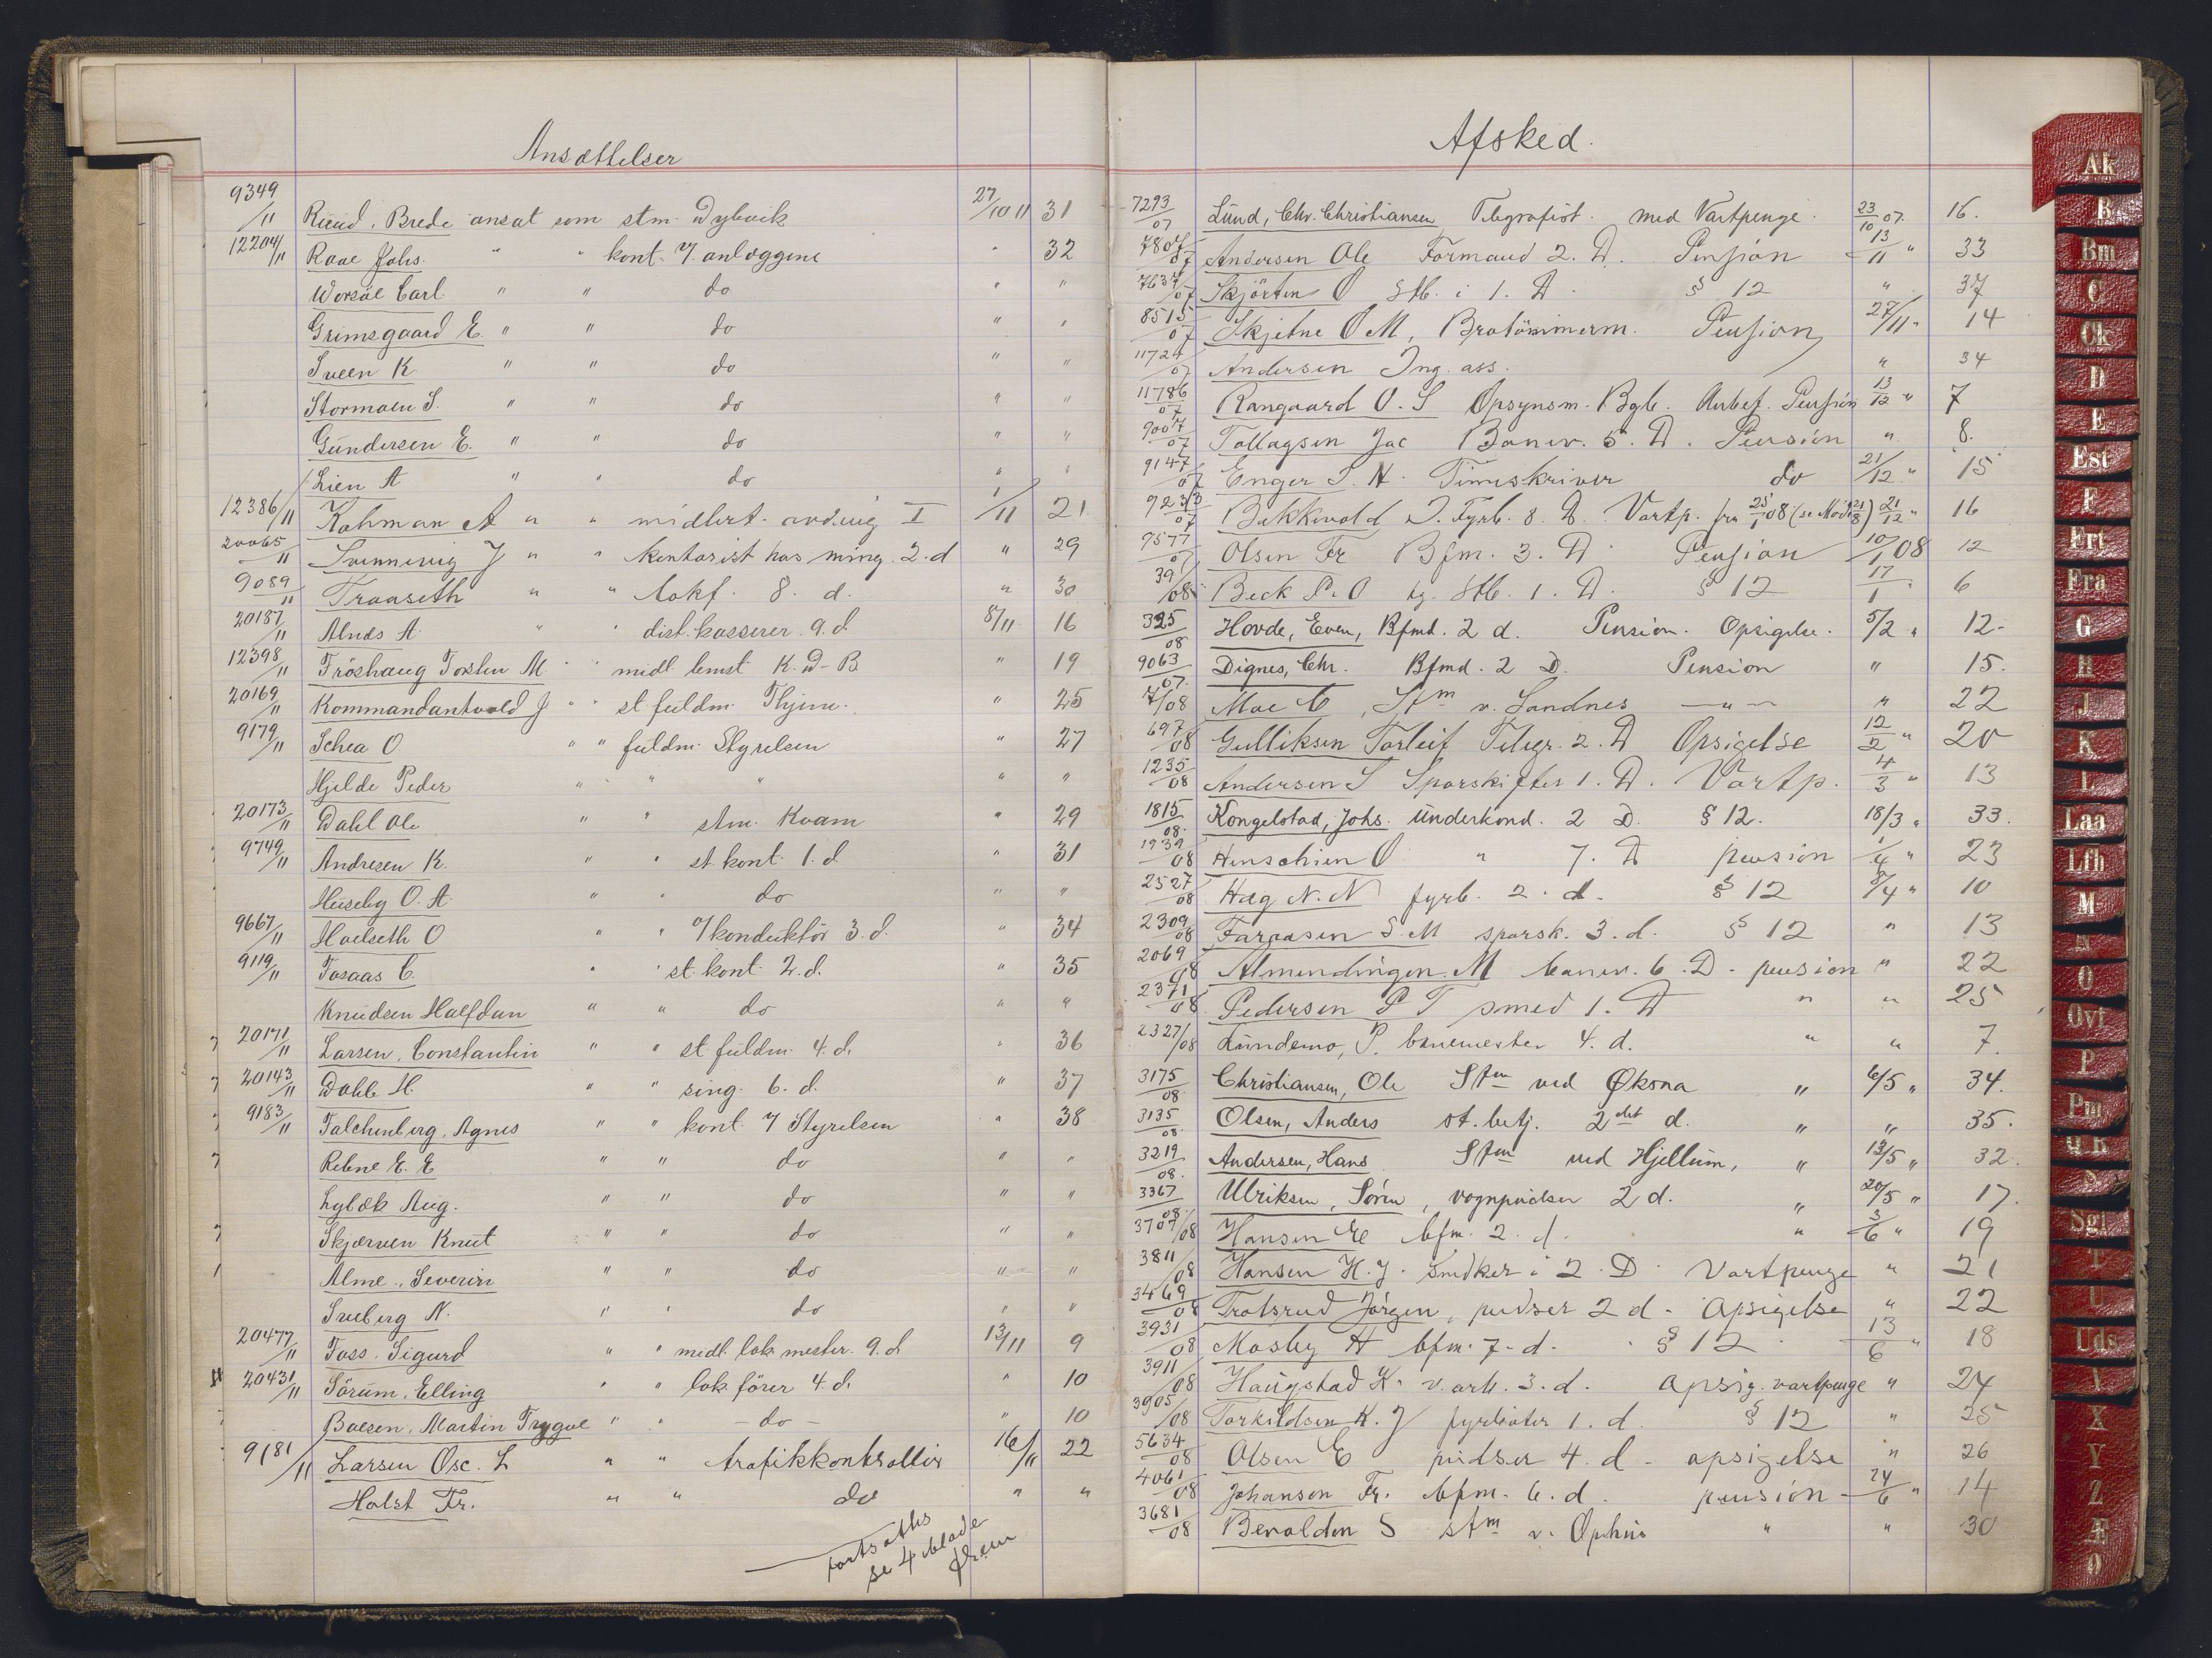 Ansættelser
9349/11 Ruud, Brede ansat som stm. Dybvik 27/10 11 31
12204/11 Raae Johs. " " kont. v/ anlæggene " 32
Worsöe Carl " " do " "
Grimsgaard E. " " do " "
Sveen K " " do " "
Stormoen S. " " do " "
Gundersen E. " " do " "
Lien A " " do " "
12386/11 Kahman A " " midlert. avd.ing I 1/11 21
20065/11 Svennevig J " " kontorist hos ming. 2. d " 29
9089/11 Traaseth " " lokf. 8. d. " 30
20187/11 Alnæs A. " " dist. kasserer 9. d 8/11 16
12398/11 Fröshaug Torsten M. " " midl. K. D-B " 19
20169/11 Kommandantvold J " " st. fuldm. " 25
9179/11 Schea O " " fuldm. Styrelsen " 27
Hjelde Peder " " " " "
20173/11 Dahl Ole " " stm. Kvam " 29
9749/11 Andresen K. " " st. kont. 1. d " 31
Huseby O. A. " " do " "
9667/11 Hoelseth O " " o/konduktör 3. d. " 34
9119/11 Tosaas C. " " st. kont. 2. d. " 35
Knudsen Halfdan " " do " "
20171/11 Larsen, Constantin " " st. fuldm. 4. d. " 36
20143/11 Dahle H. " " sing. 6. d. " 37
9183/11 Falchenberg, Agnes " " kont. v/ Styrelsen " 38
Rebne E. E " " do " "
Lybæk Aug. " " do " "
Skjærven Knut " " do " "
Alme, Severin " " do " "
Sveberg N. " " do " "
20477/11 Foss, Sigurd " " midl. lok. mester. 9. d 13/11 9
20431/11 Sörum, Elling " " lok. förer 4. d. " 10
Boesen, Martin Trygve " " - do - " 10
9181/11 Larsen Osc. L " " trafikkontrollör 16/11 22
Holst Fr. " " do " "
fortsættes
se 4 blade
frem
Afsked.
7293/07 Lund, Chr. Christiansen Telegrafist. med Vartpenge. 23/10 07. 16.
7807/07 Andersen Ole Formand 2. D. Pension 13/11 " 33
7637/07 Skjörten O Stb. i 1. D. § 12 " 37
8515/07 Skjetne O M, Brotömmerm. Pension 27/11 " 14
11724/07 Andersen Ing. ass. " 34
11786/07 Rangaard O. S Opsynsm. Bgb. Anbef. Pension 13/12 " 7
9007/07 Tollagsen Jac Banev. 5. D. Pension " 8.
9147/07 Enger S. H. Timeskriver do 21/12 " 15
9233/07 Bakkevold J. Fyrb. 8. D. Vartp. fra 25/1 08 21/12 " 16
9577/07 Olsen Fr Bfm. 3. D. Pension 10/1 08 12
39/08 Beck P. O tg. Stb. 1. D. § 12 17/1 " 6
325/08 Hovde, Even, Bfmd. 2 d. Pension. Opsigelse. 5/2 " 12-
9063/07. Dignes, Chr. Bfmd. 2 D. Pension " 15.
7/08 Moe C, Stm v. Sandnes —"— " 22
697/08 Gulliksen Torleif Telegr. 2. D Opsigelse 12/2 " 20
1235/08 Andersen S Sporskifter 1. D. Vartp. 4/3 " 13
1815/08. Kongelstad, Johs. Underkond. 2 D. § 12. 18/3 " 33.
1939/08 Henschien O " 7. D pension 1/4 " 23
2527/08 Hag N. N fyrb. 2. d. § 12 8/4 " 10
2309/08 Faraasen S. M sporsk. 3. d. § 12 " 13
2069/08 Almendingen M banev. 6. D. pension " 22
2371/08. Pedersen P T smed 1. D " " 25
2327/08 Lundemo, P. banemester 4. d. " " 7.
3175/08. Christiansen, Ole Stm ved Øksna " 6/5 " 34.
3135/08. Olsen, Anders st. betj. 2det d. " " 35.
3219/08. Andersen, Hans Stm ved Hjellum, " 13/5 " 32.
3367/08. Ulriksen, Sören, vognpudser 2 d. " 20/5 " 17.
3707/08 Hansen bfm. 2. d. " 3/6 " 19
3811/08 Hansen H. J. Snedker i 2. D. Vartpenge " 21
3469/08 Trotsrud Jörgen, pudser 2 d. Opsigelse " 22
3931/08 Mosby H bfm. 7. d. § 12 13/6 " 18
3911/08 Haugstad K. v. arb. 3. d. opsig. vartpenge " 24
3905/08 Torkildsen K. J fyrböter 1. d. § 12 " 25
5634/08 Olsen E pudser 4. d. opsigelse " 26
4061/08 Johansen Fr. bfm. 6. d. pension 24/6 " 14
3681/08 Bevolden S stm v. Ophus " " 30
Ak
B
Bm
C
Ck
D
E
Est
F
Frt
Fra
G
H
J
K
L
Laa
Lfh
M
N
O
Ovf
P
Pm
Q R
S
Sgl
T
U
Uds
V
X
Y
Z
Æ
Ø